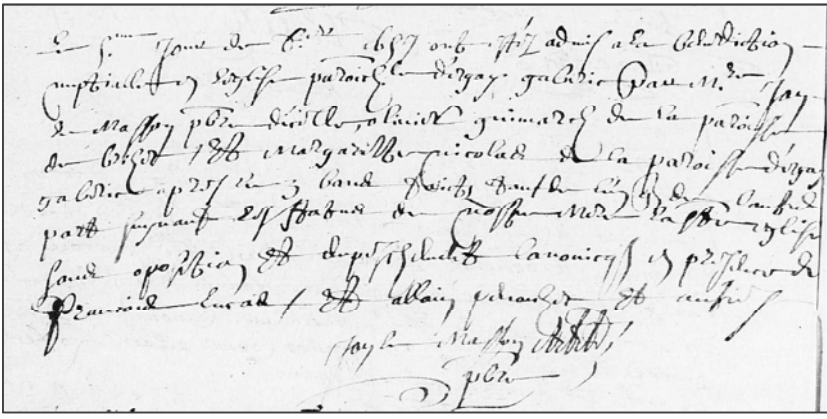 Le 5me jour de 1657 ont estés admis a la benediction
nuptialle en l'eglise paroichle d'ergay gaberic par Mre Jan
le Masson pbre d'icelle, olivier guimarch de la paroisse
de briec / Et Margaritte nicolas de la paroisse d'ergay
gaberic apres les 3 bans faicts tant de l'un de l'autre
part suyvant les statuts de nostre Mere la Ste eglise
sans oposition Et empeschement canonicqs en presence de
Francois Lucas / Et allain Et autres
Jan le Masson
pbre